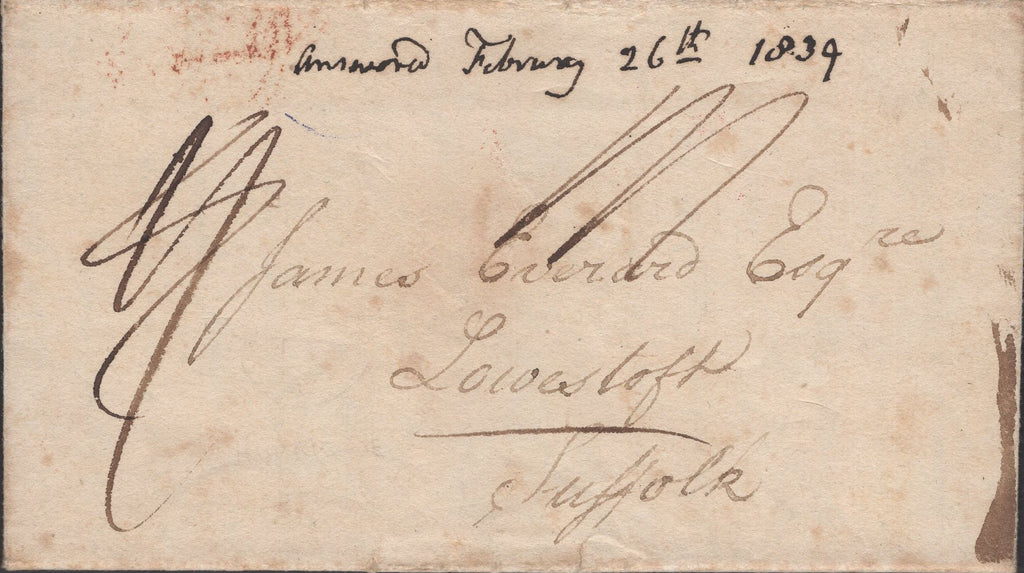 answered February 26th 1834
James Everard Esqre
Lowestoft
Suffolk